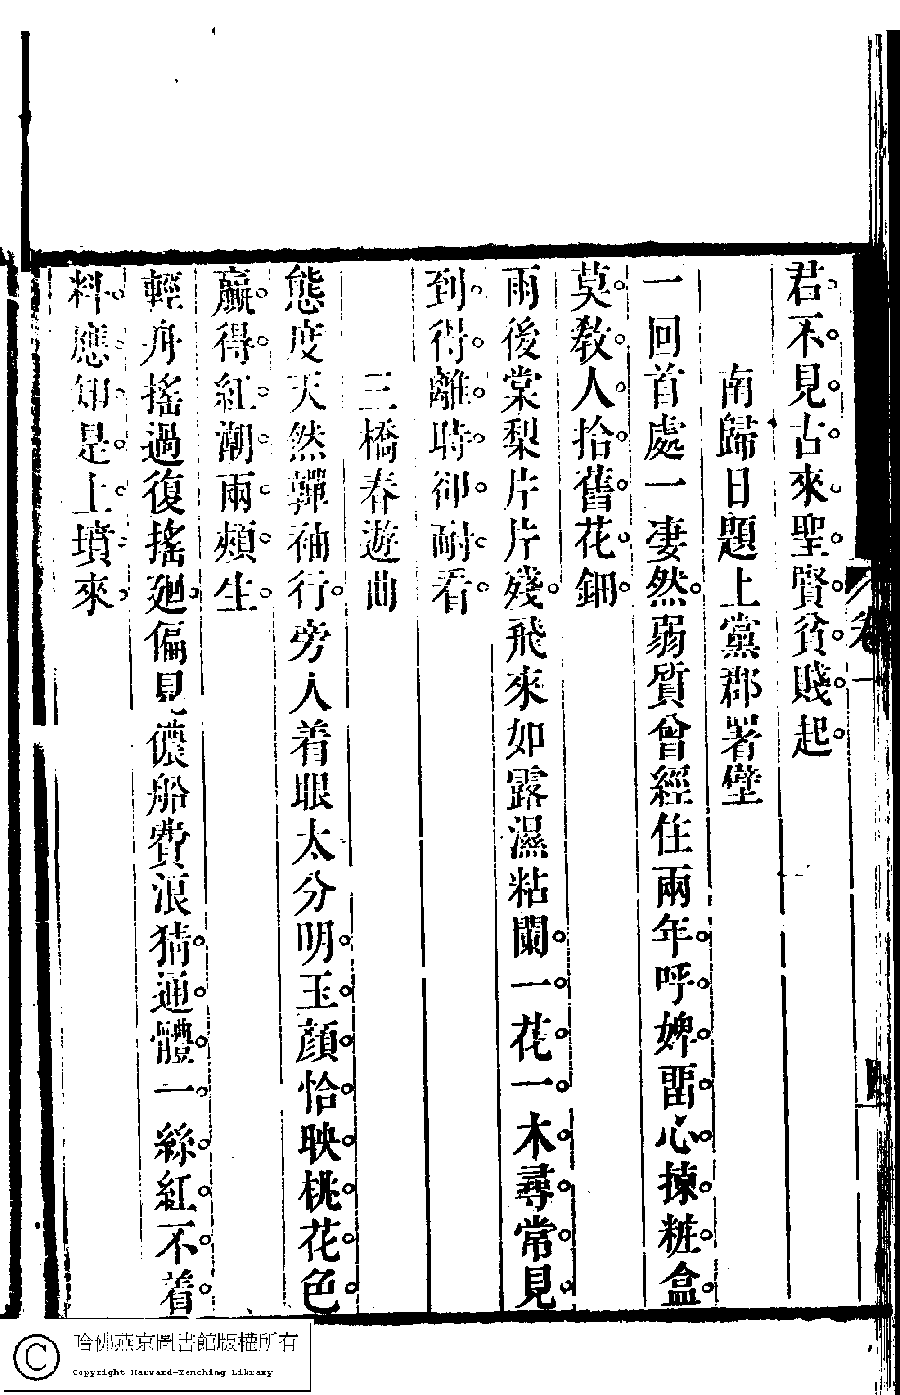 君不見古來聖賢貧賤起
南歸日題上黨郡署壁
一回首處一凄然弱質曾經住兩年呼婢畱心揀粧盒
莫教人拾舊花鈿
雨後棠梨片片殘飛來如露濕粘闌一花一木尋常見
到得離時卻耐看
三橋春遊曲
態度天然嚲袖行旁人着眼太分明玉顏恰映桃花色
贏得紅潮兩頰生
輕舟搖過復搖廻偏見儂船費浪猜通體一絲紅不着
料應知是上墳來
卷一
哈佛燕京圖書館版權所有
Copyright Harvard-Yenching Library